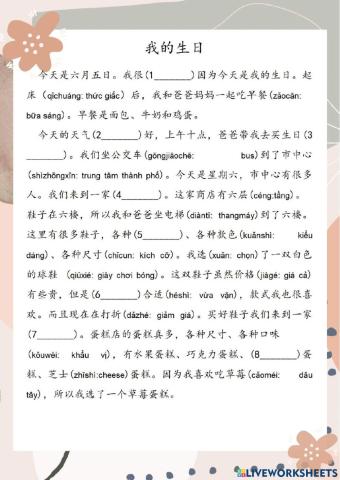 我的生日
今天是六月五日。我很(1_______)因为今天是我的生日。起
床（qǐchuáng: thức giấc）后，我和爸爸妈妈一起吃早餐(zǎocān:
bữa sáng)。早餐是面包、牛奶和鸡蛋。
今天的天气(2_______)好，上午十点，爸爸带我去买生日(3
_______)。我们坐公交车(gōngjiāochē: bus)到了市中心
(shìzhōngxīn: trung tâm thành phố)。今天是星期六，市中心有很多
人。我们来到一家(4_______)。这家商店有六层(céng:tầng)。
鞋子在六楼，所以我和爸爸坐电梯(diàntī: thangmáy)到了六楼。
这里有很多鞋子，各种(5______)、各种款色(kuǎnshì: kiểu
dáng)、各种尺寸(chǐcun: kích cỡ)。我选(xuǎn: chọn)了一双白色
的球鞋 (qiúxié: giày chơi bóng)。这双鞋子虽然价格(jiàgé: giá cả)
有些贵，但是(6_______)合适(héshì: vừa vặn)，款式我也很喜
欢。而且现在在打折(dǎzhé: giảm giá)。买好鞋子我们来到一家
(7_______)。蛋糕店的蛋糕真多，各种尺寸、各种口味
(kǒuwèi: khẩu vị)，有水果蛋糕、巧克力蛋糕、(8_______)蛋
糕、芝士(zhīshì:cheese)蛋糕。因为我喜欢吃草莓(cǎoméi: dâu
tây)，所以我选了一个草莓蛋糕。
LIVEWORKSHEETS